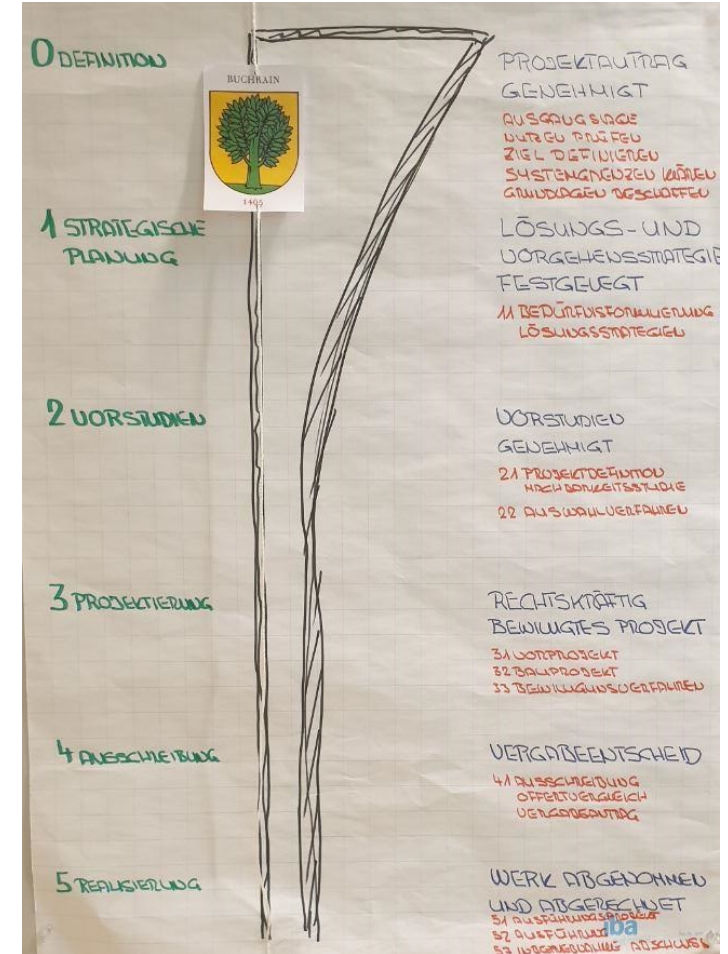 0 DEFINITION
BUCHRAIN
1405
PROJEKTAUTRAG
GENEHMIGT
AUSGANGSLAGE
NUTZEN PRÜFEN
ZIEL DEFINIEREN
SYSTEMGRENZEN KLÄREN
GRUNDLAGEN BESCHAFFEN
1 STRATEGISCHE
PLANUNG
LÖSUNGS- UND
VORGEHENSSTRATEGIE
FESTGELEGT
11 BEDÜRFNISFORMULIERUNG
LÖSUNGSSTRATEGIEN
2 VORSTUDIEN
VORSTUDIEN
GENEHMIGT
21 PROJEKTDEFINITION
MACHBARKEITSSTUDIE
22 AUSWAHLVERFAHREN
3 PROJEKTIERUNG
RECHTSKRÄFTIG
BEWILLIGTES PROJEKT
31 VORPROJEKT
32 BAUPROJEKT
33 BEWILLIGUNSVERFAHREN
4 AUSSCHREIBUNG
VERGABEENTSCHEID
41 AUSSCHREIBUNG
OFFERTVERGLEICH
VERGABEANTRAG
5 REALISIERUNG
WERK ABGENOMMEN
UND ABGERECHNET
51 AUSFÜHRUNGSPROJEKT
iba
52 AUSFÜHRUNG
53 INBETRIEBNAHME ABSCHLUSS